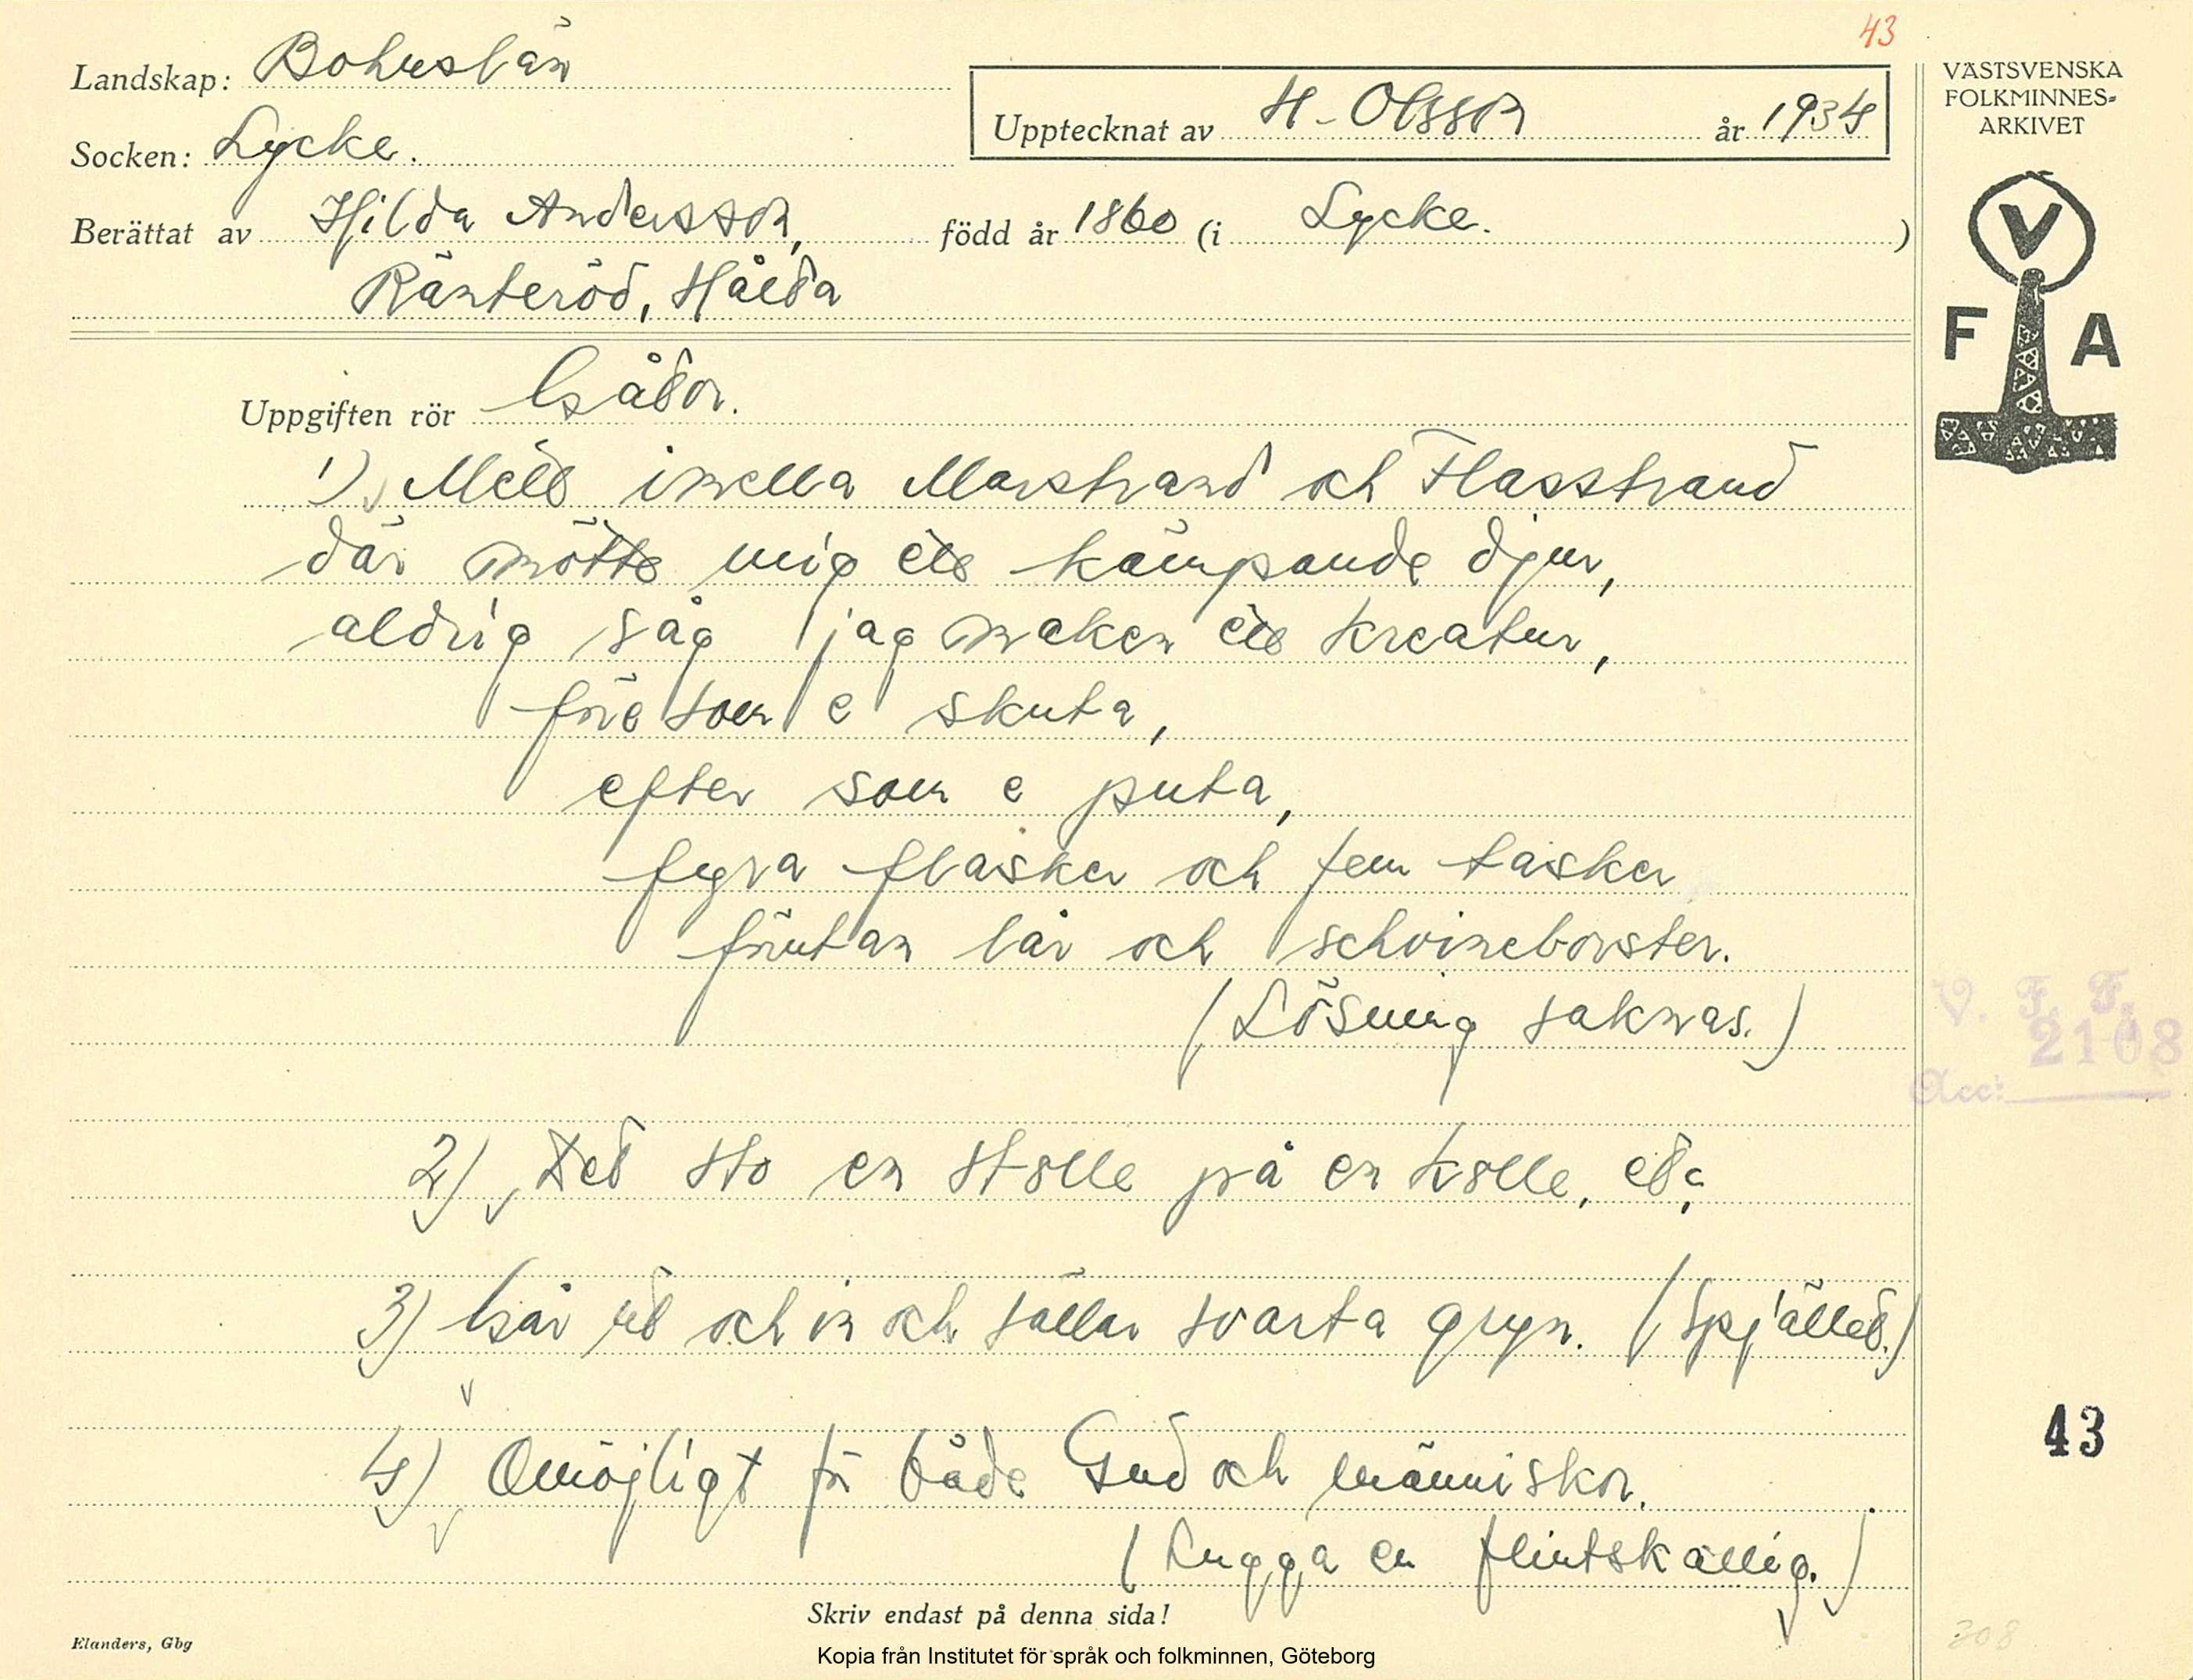 43
Landskap: Bohuslän
Socken: Lycke.
Upptecknat av H. Olsson år 1934
Berättat av Hilda Andersson, född år 1860 (i Lycke.)
Ränteröd, Hålta
Uppgiften rör Gåtor.
1) Mett imella Marstrand och Flasstrand
där mötte mig ett kämpande djur,
aldrig såg jag maken ett kreatur,
före som e skuta,
efter som e puta,
fyra flasker och fem tasker
förutan lår och schvineborster.
(Lösning saknas.)
2) Det sto en stolle på en kolle, etc
3) Går ut och in och sållar svarta gryn. (Spjället.)
4) Omöjligt för både Gud och människor.
(Lugga en flintskallig.)
Skriv endast på denna sida!
Elanders, Gbg
VÄSTSVENSKA
FOLKMINNES-
ARKIVET
V
F A
V. F. F.
2108
Acc:
43
308
Kopia från Institutet för språk och folkminnen, Göteborg